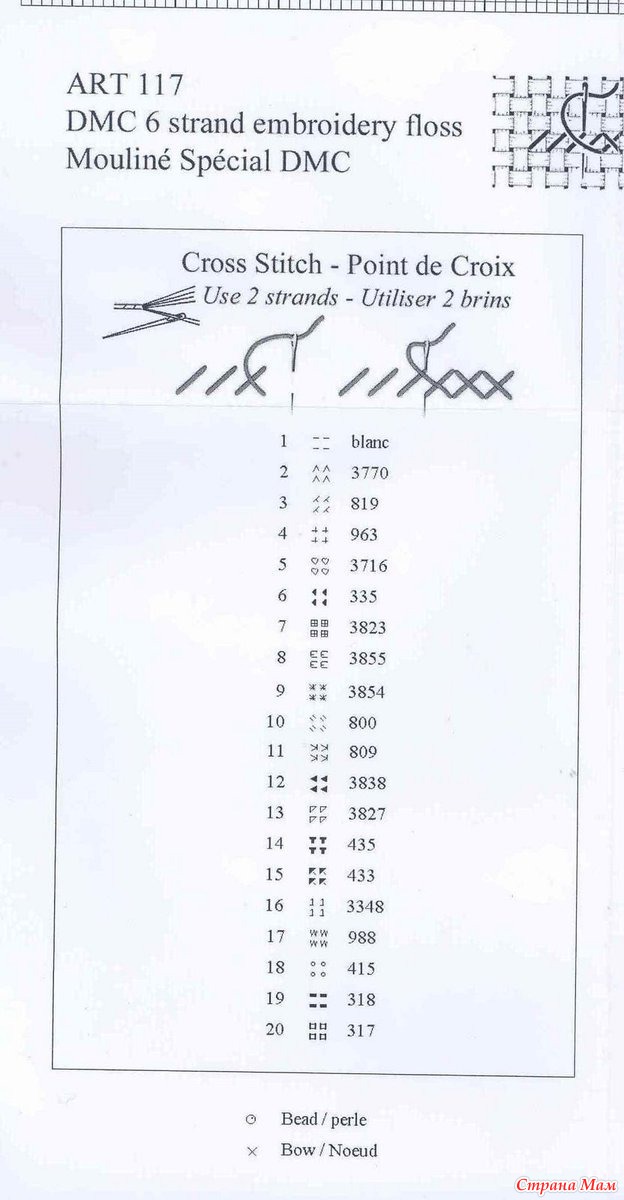 ART 117
DMC 6 strand embroidery floss
Mouliné Spécial DMC
Cross Stitch - Point de Croix
Use 2 strands - Utiliser 2 brins
1 blanc
2 3770
3 819
4 963
5 3716
6 335
7 3823
8 3855
9 3854
10 800
11 809
12 3838
13 3827
14 435
15 433
16 3348
17 988
18 415
19 318
20 317
Bead / perle
Bow / Noeud
Страна Мам